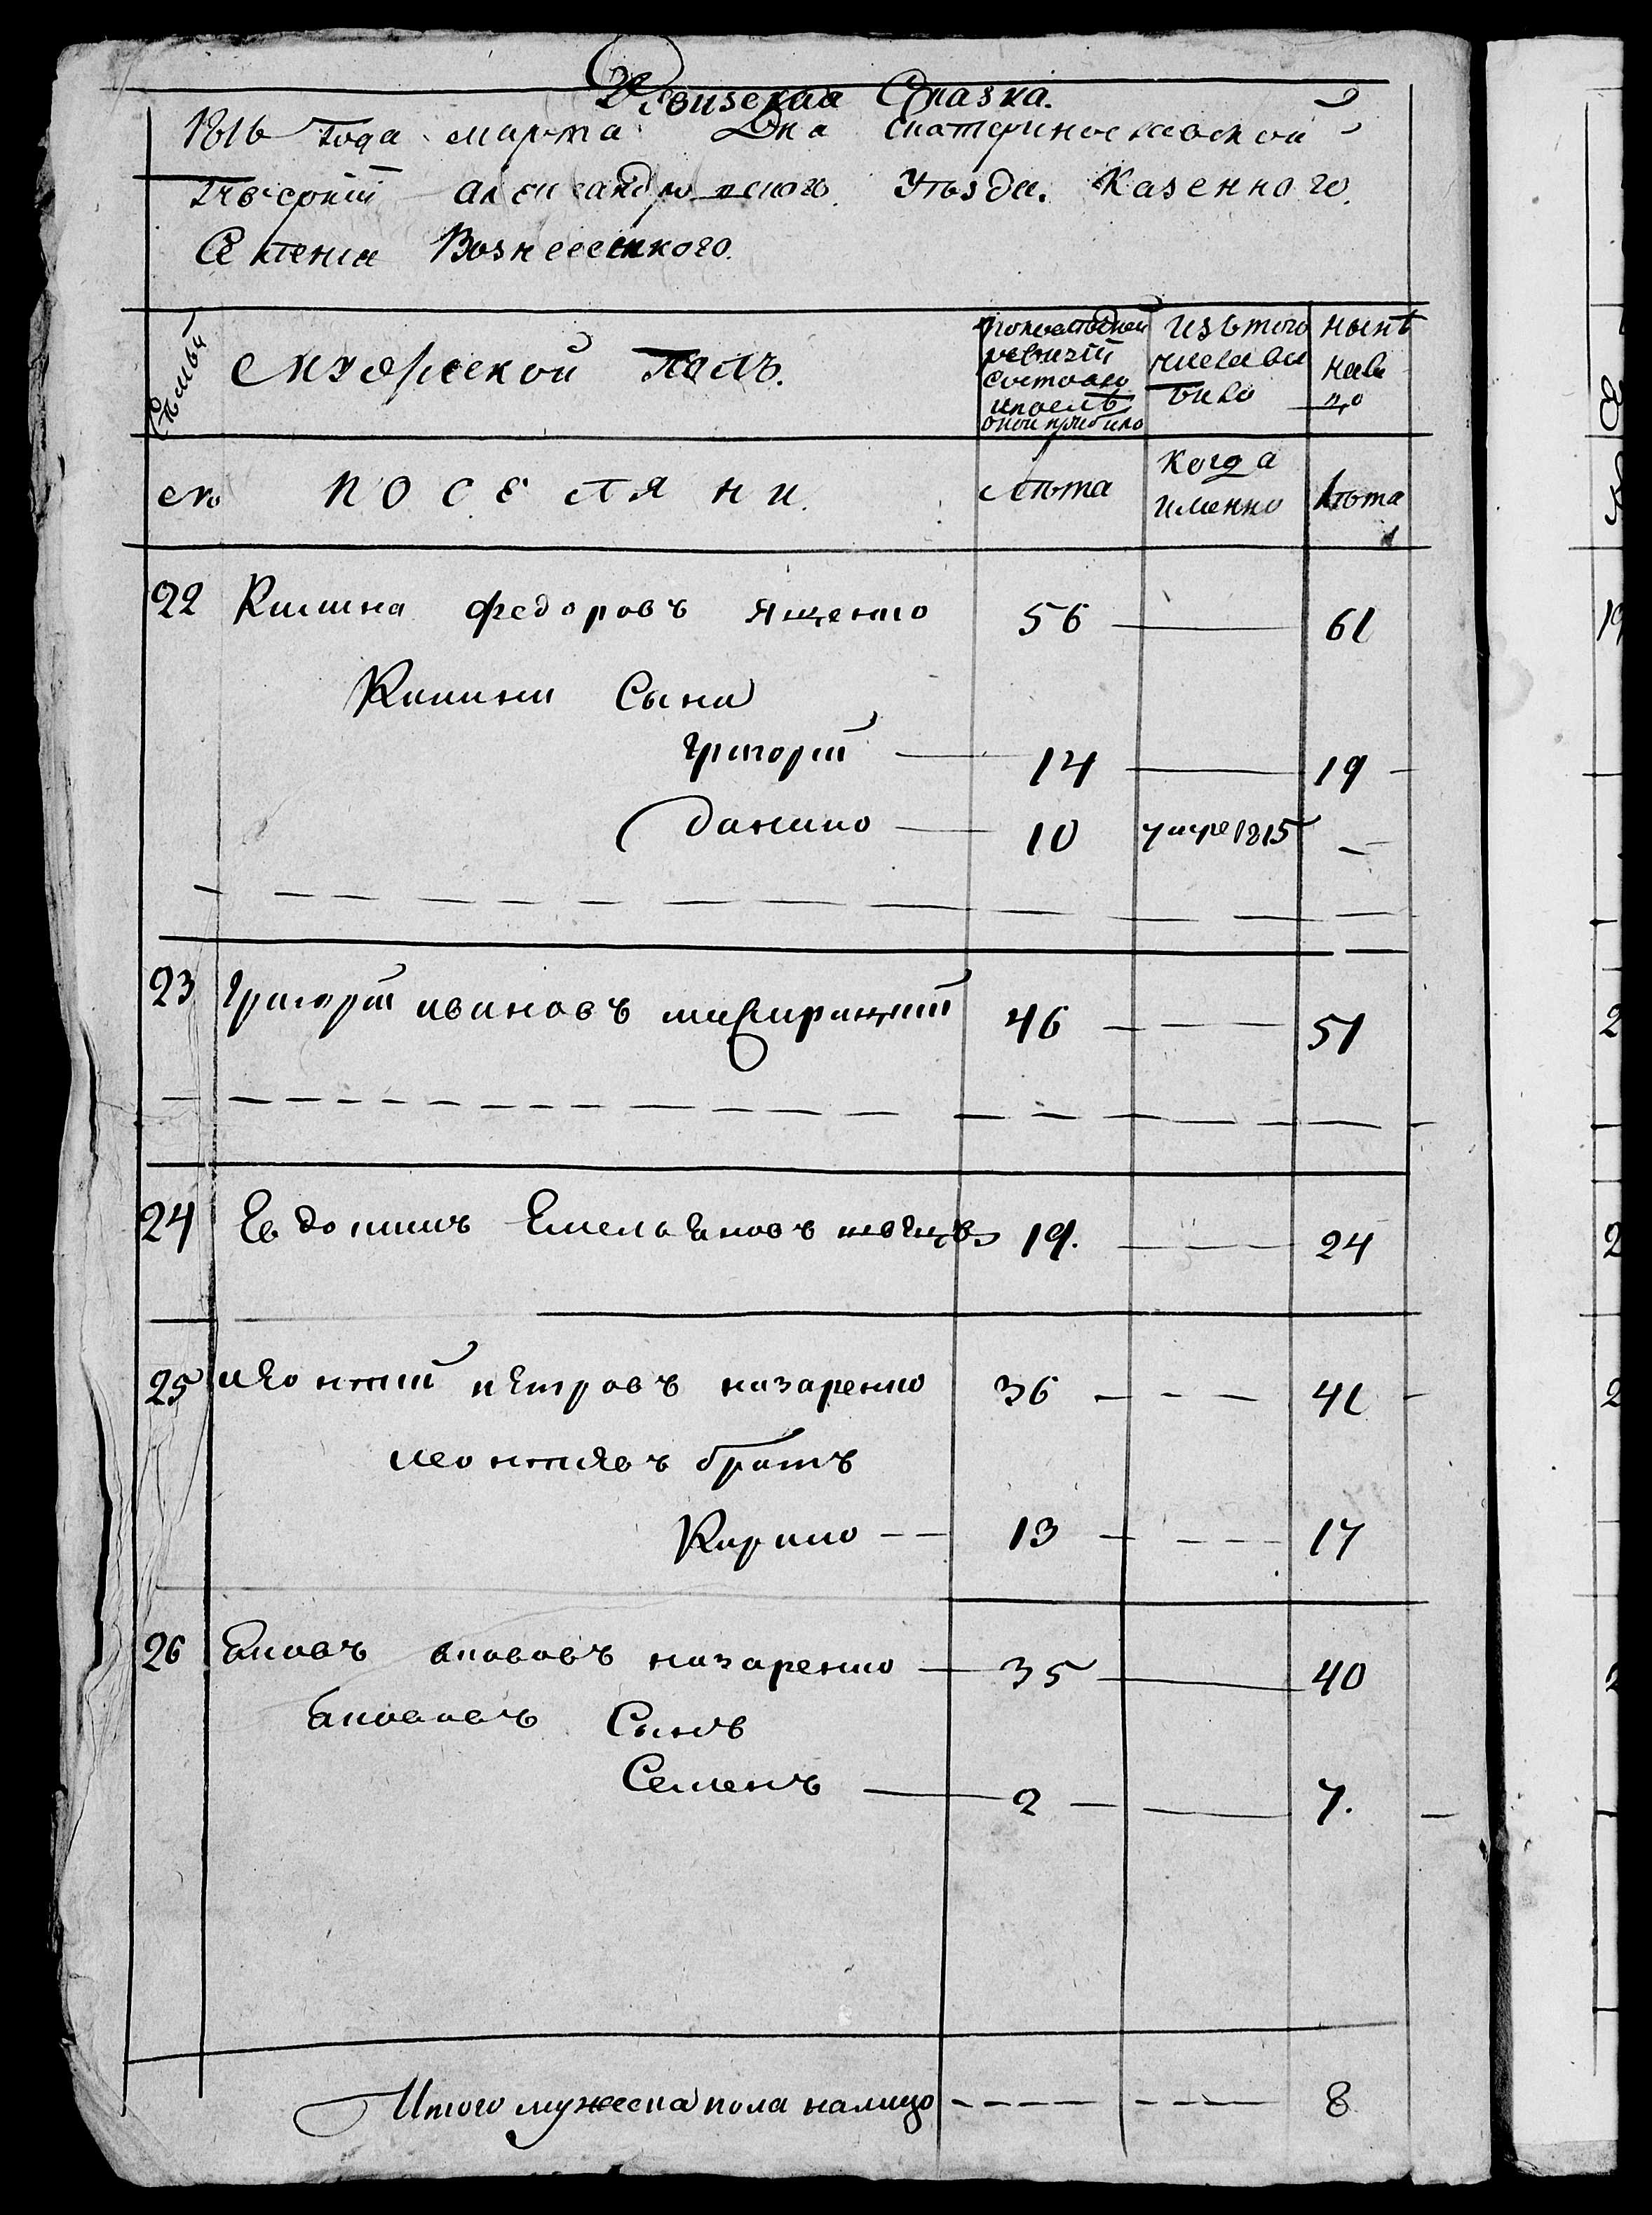 Ревизская Сказка.
1816 года марта Дня Екатеринославской
Губернии Александровского Уезда. Казенного.
Селения Вознесенского.
Семьи
Мужеской полъ.
по последней ревизии состояло и после оной прибыло
Изъ того числа выбыло
ныне налицо
№ поселяни.
Лѣта
Когда именно
Лѣта
22 Климъ Федоровъ Ященко 56 — 61
Сыни
Григорий — 14 — 19
Данило — 10 умре 1815 —
23 Григорий Ивановъ 46 — 51
24 Евдокимъ Емельяновъ 19. — 24
25 Леонтий Петровъ Назаренко 36 — 41
Леонтиевъ братъ
Кирило — 13 — 17
26 Яковъ Якововъ Назаренко — 35 — 40
Якововъ Сынъ
Семенъ — 2 — 7.
Итого мужеска пола налицо — — 8